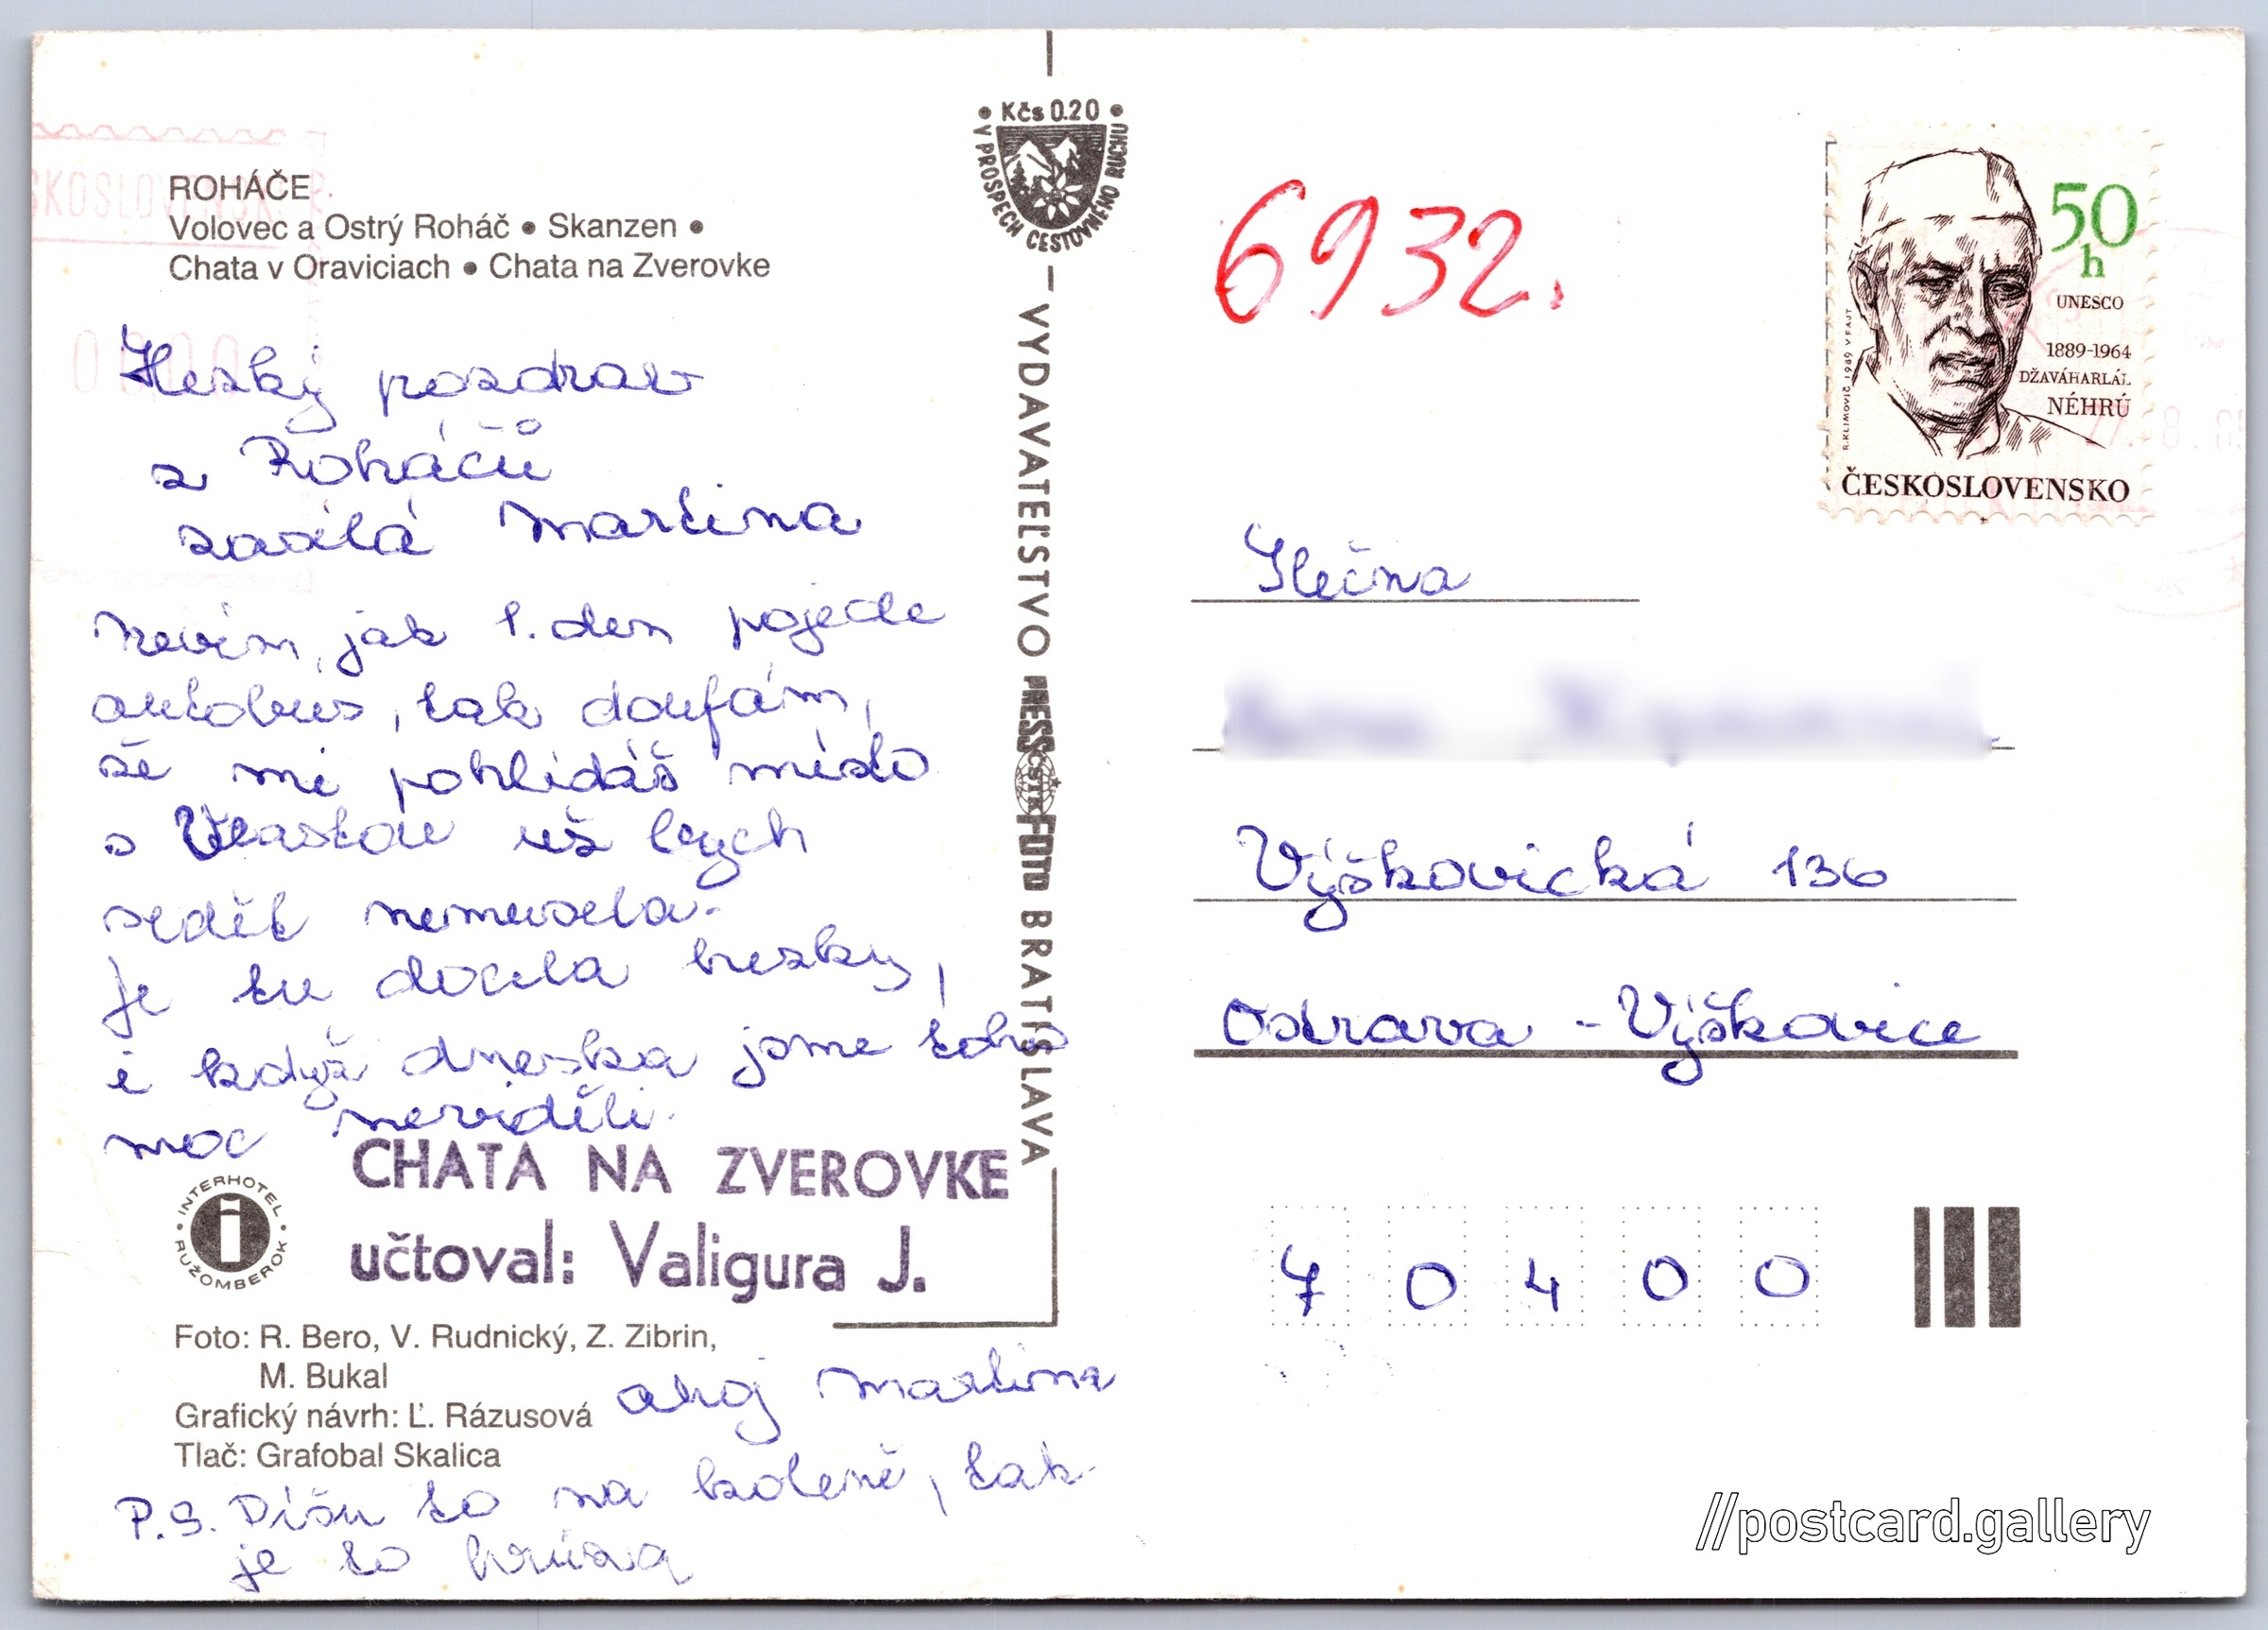 ROHÁČE
Volovec a Ostrý Roháč • Skanzen •
Chata v Oraviciach • Chata na Zverovke
Hezký pozdrav
z Roháčů
zasílá Martina
Nevím, jak 1. den pojede
autobus, tak doufám,
že mi pohlídáš místo
s Vlastou už bych
sedět nemusela.
Je tu docela hezky,
i když dneska jsme toho
moc neviděli.
CHATA NA ZVEROVKE
učtoval: Valigura J.
• INTERHOTEL • RUŽOMBEROK
Foto: R. Bero, V. Rudnický, Z. Zibrin,
M. Bukal
Grafický návrh: Ľ. Rázusová
Tlač: Grafobal Skalica
ahoj Martina
P.S. Píšu to na koleně, tak
je to hrůza
• Kčs 0.20 •
V PROSPECH CESTOVNÉHO RUCHU
VYDAVATEĽSTVO PRESSFOTO BRATISLAVA
ČSTK
6932.
50
h
UNESCO
1889-1964
DŽAVÁHARLÁL
NÉHRÚ
R. KLIMOVIČ 1989 V. FAJT
ČESKOSLOVENSKO
Slečna
Výškovická 136
Ostrava - Výškovice
7 0 4 0 0
//postcard.gallery